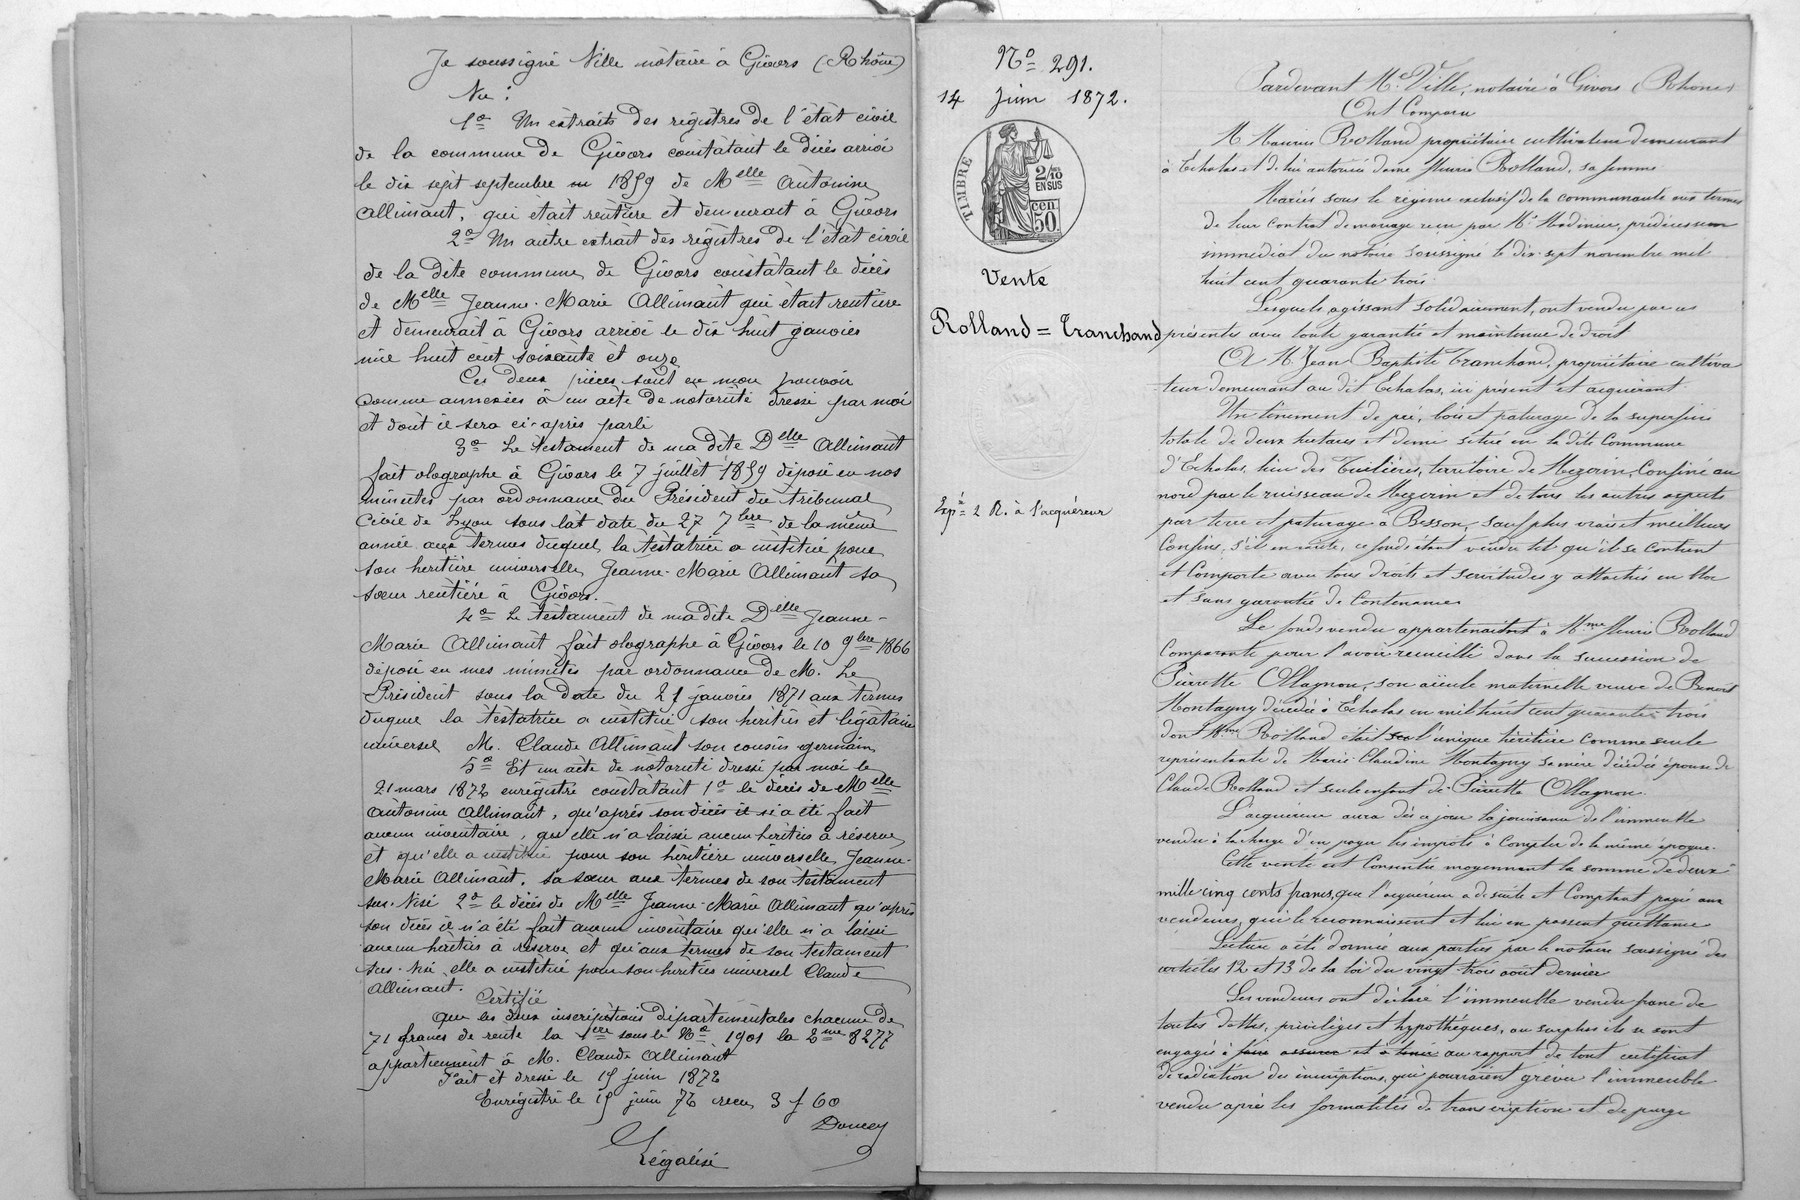 Je soussigné Ville notaire à Givors (Rhône)
Vu :
1º Un extraits des registres de l'état civil
de la commune de Givors constatant le décès arrivé
le dix sept septembre 1859 de Melle Antonine
Allimant, qui était rentière et demeurait à Givors
2º Un autre extrait des registres de l'état civil
de la dite commune de Givors constatant le décès
de Melle Jeanne-Marie Allimant qui était rentière
et demeurait à Givors arrivé le dix huit janvier
mil huit cent soixante et onze
Ces deux pièces sont en mon pouvoir
comme annexées à un acte de notoriété dressé par moi
et dont il sera ci-après parlé
3º Le testament de ma dite Delle Allimant
fait olographe à Givors le 7 juillet 1859 déposé en nos
minutes par ordonnance du Président du tribunal
Civil de Lyon sous la date du 27 7bre de la même
année aux termes duquel la testatrice a institué pour
son héritière universelle Jeanne-Marie Allimant sa
sœur rentière à Givors.
4º Le testament de ma dite Delle Jeanne-
Marie Allimant fait olographe à Givors le 10 9bre 1866
déposé en mes minutes par ordonnance de M. Le
Président sous la date du 21 janvier 1871 aux termes
duquel la testatrice a institué son héritier et légataire
universel M. Claude Allimant son cousin germain
5º Et un acte de notoriété dressé par moi le
21 mars 1872 enregistré constatant 1º le décès de Melle
Antonine Allimant, qu'après son décès il n'a été fait
aucun inventaire, qu'elle n'a laissé aucun héritier à réserve
et qu'elle a institué pour son héritière universelle Jeanne-
Marie Allimant, sa sœur aux termes de son testament
sus-visé 2º le décès de Melle Jeanne-Marie Allimant qu'après
son décès il n'a été fait aucun inventaire qu'elle n'a laissé
aucun héritier à réserve et qu'aux termes de son testament
sus-visé elle a institué pour son héritier universel Claude
Allimant.
Certifie
Que les deux inscriptions départementales chacune de
71 francs de rente la 1ere sous le Nº 1901 la 2me 8277
appartiennent à M. Claude Allimant
Fait et dressé le 15 juin 1872
Enregistré le 15 juin 72 recu 3 f 60
Légalisé
Nº 291.
14 Juin 1872.
TIMBRE
2/10
EN SUS
50 cen
Vente
Rolland = Tranchand
Expé 2 R. à l'acquéreur
Pardevant Me Ville, notaire à Givors (Rhone)
Ont Comparu
M. Maurin Rolland propriétaire cultivateur demeurant
à Echalas et de lui autorisée dame Rolland, sa femme
Mariés sous le régime exclusif de la communauté aux termes
de leur contrat de mariage reçu par Me prédécesseur
immédiat du notaire soussigné le dix-sept novembre mil
huit cent quarante trois.
Lesquels agissant solidairement, ont vendu par ces
présentes avec toute garantie et maintenue de droit
A M. Jean Baptiste Tranchand, propriétaire cultiva
teur demeurant au dit Echalas, ici présent et acquérant
Un tènement de pré, bois et paturage de la superficie
totale de deux hectares et demi situé en la dite Commune
d'Echalas, lieu des Tuilières, territoire de Mezerin, Confiné au
nord par le ruisseau de Mezerin et de tous les autres aspects
par terre et paturage à Besson, sauf plus vrais et meilleurs
Confins, s'il en existe, ce fonds étant vendu tel qu'il se contient
et Comporte avec tous droits et servitudes y attachés en bloc
et sans garantie de Contenance
Le fonds vendu appartenait à Mme Rolland
Comparante pour l'avoir recueilli dans la succession de
Pierrette Ollagnon, son aïeule maternelle veuve de Benoit
Montagny décédée à Echalas en mil huit cent quarante trois
dont Mme Rolland était l'unique héritière comme seule
représentante de Marie Claudine Montagny sa mère décédée épouse de
Claude Rolland et seule enfant de Pierrette Ollagnon.
L'acquéreur aura dès ce jour la jouissance de l'immeuble
vendu à la charge d'en payer les impôts à Compter de la même époque.
Cette vente est Consentie moyennant la somme de deux
mille cinq cents francs, que l'acquéreur a de suite et Comptant payée aux
vendeurs, qui le reconnaissent et lui en passent quittance
Lecture a été donnée aux parties par le notaire soussigné des
articles 12 et 13 de la loi du vingt trois août dernier
Les vendeurs ont déclaré l'immeuble vendu franc de
toutes dettes, privilèges et hypothèques, au surplus ils se sont
engagés à faire assurer et à tenir au rapport de tout certificat
de radiation des inscriptions, qui pourraient grever l'immeuble
vendu après les formalités de transcription et de purge